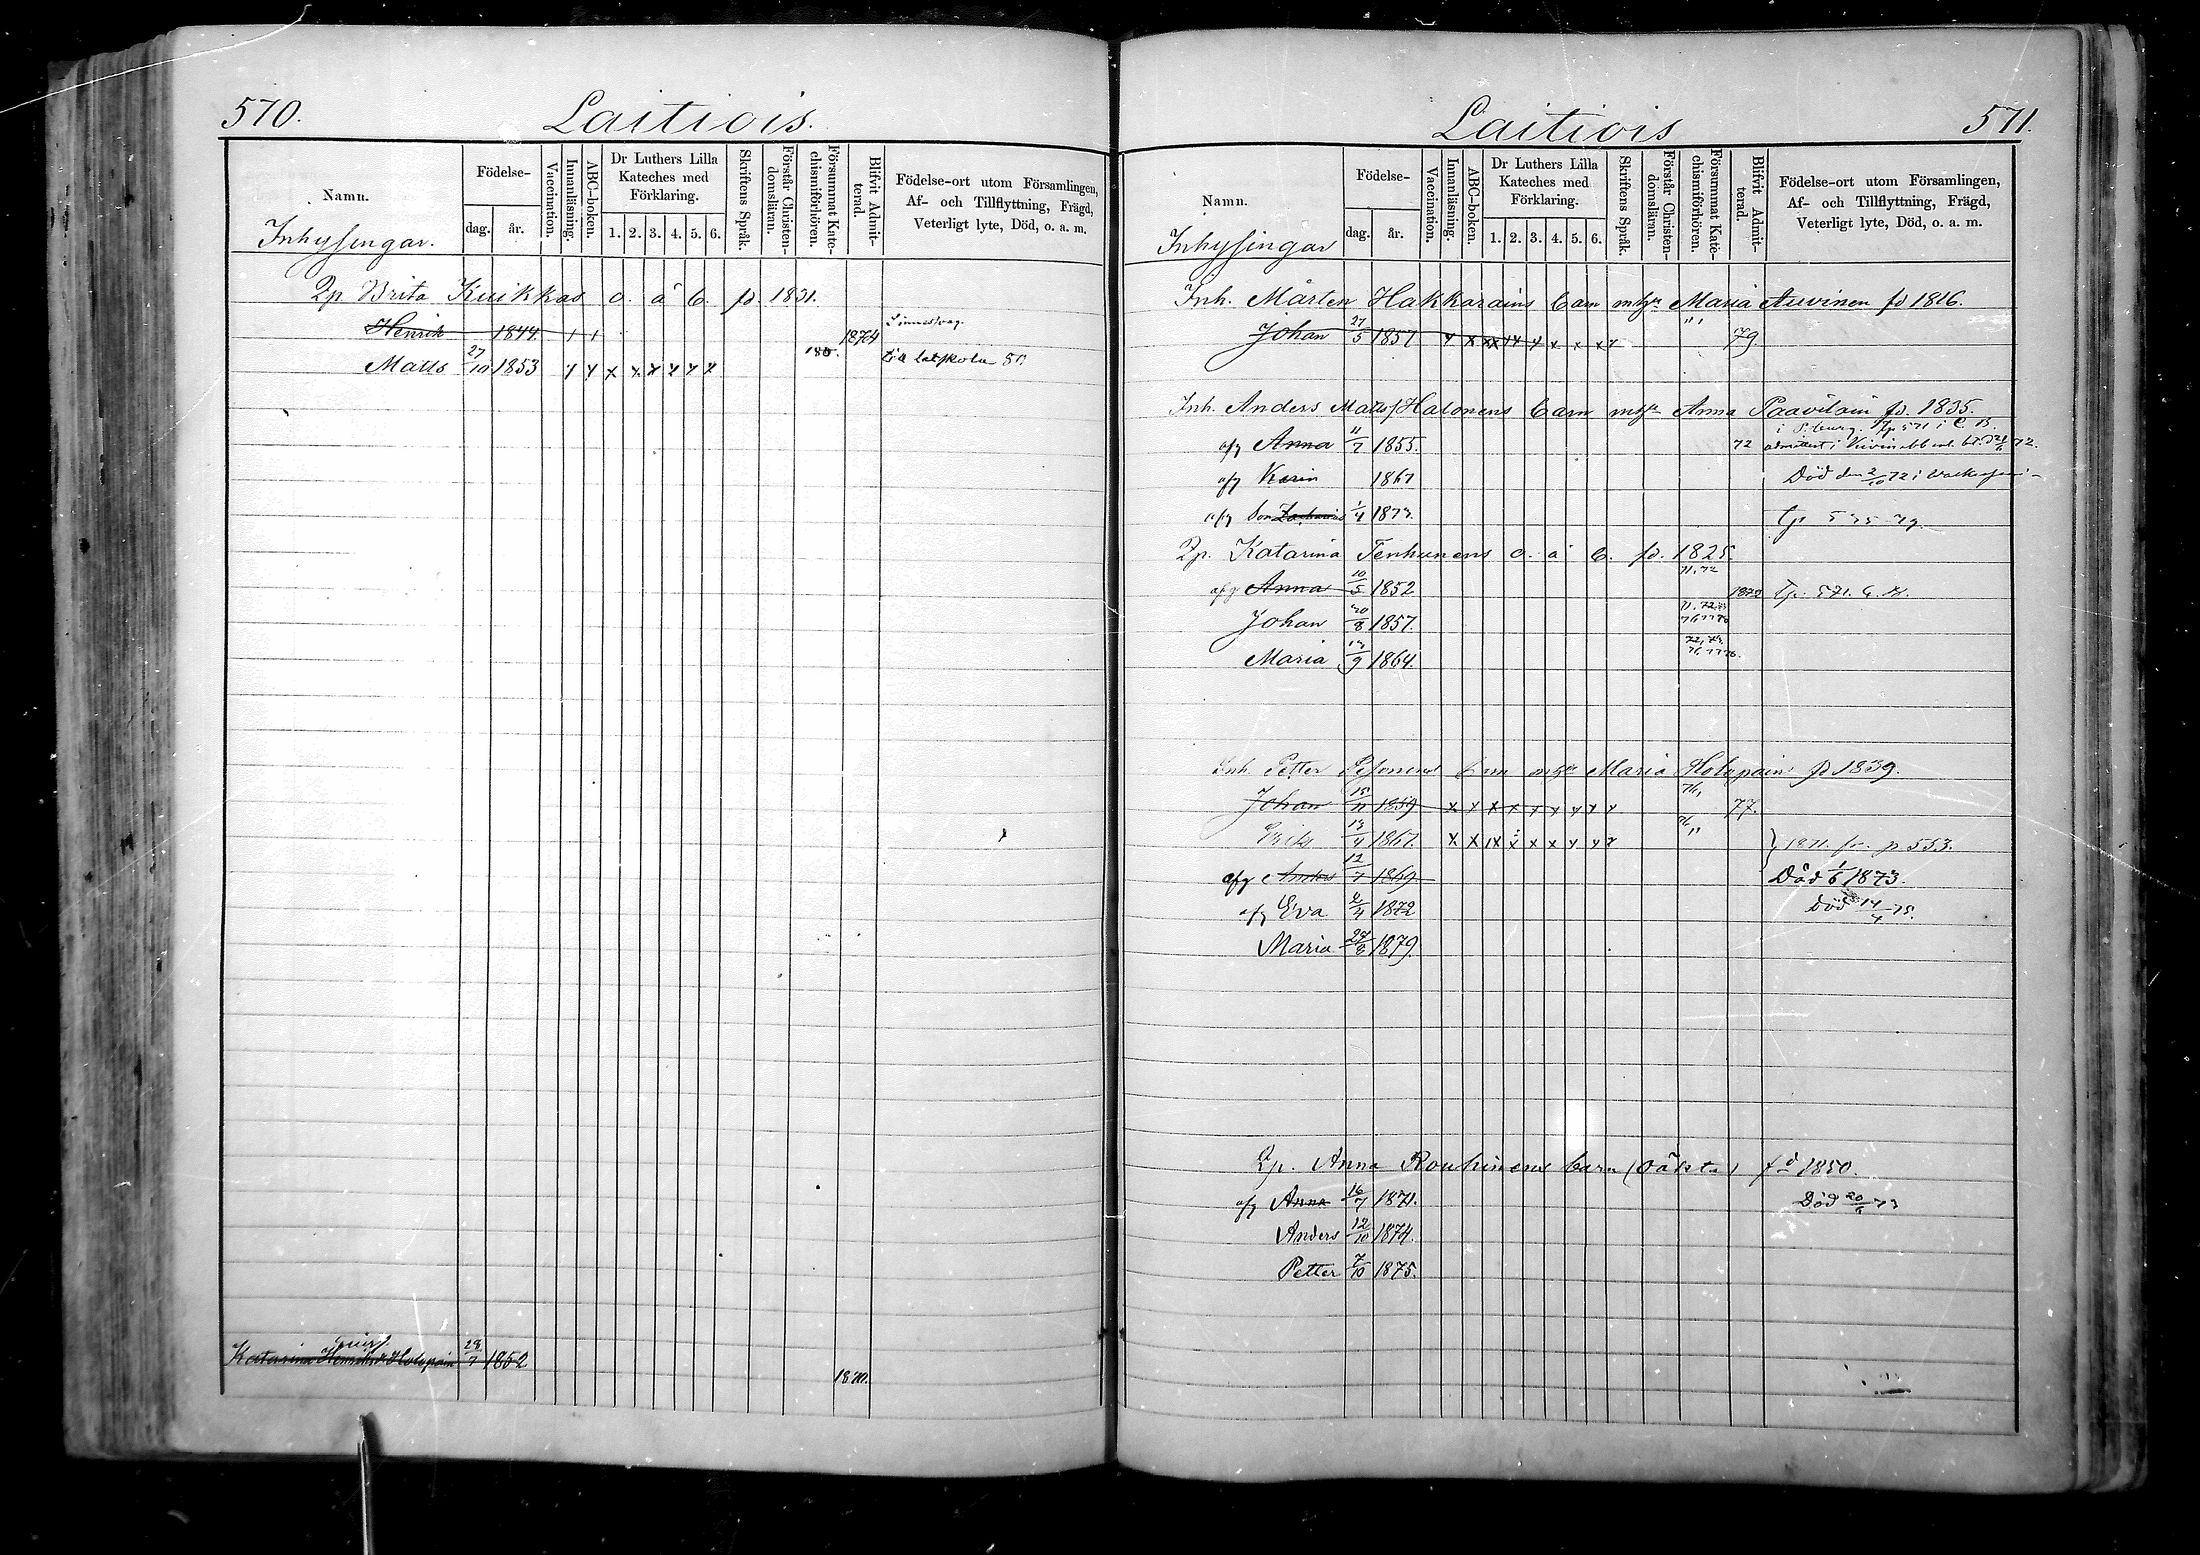 570.
Laitiois.
Namn.
Födelse-
dag. år.
Vaccination.
Innanläsning.
ABC-boken.
Dr Luthers Lilla
Kateches med
Förklaring.
1. 2. 3. 4. 5. 6.
Skriftens Språk.
Förstår Christen-
domsläran.
Försummat Kate-
chismiförhören.
Blifvit Admit-
terad.
Födelse-ort utom Församlingen,
Af- och Tillflyttning, Frägd,
Veterligt lyte, Död, o. a. m.
Inhysingar.
Qp. Brita Kuikkas o. ä b. fd. 1831.
Henrik 1844
Matts 27/10 1853
Katarina Holopain 28/7 1852
1870.
571.
Laitiois
Namn.
Födelse-
dag. år.
Vaccination.
Innanläsning.
ABC-boken.
Dr Luthers Lilla
Kateches med
Förklaring.
1. 2. 3. 4. 5. 6.
Skriftens Språk.
Förstår Christen-
domsläran.
Försummat Kate-
chismiförhören.
Blifvit Admit-
terad.
Födelse-ort utom Församlingen,
Af- och Tillflyttning, Frägd,
Veterligt lyte, Död, o. a. m.
Inhysingar
Inh. Mårten Hakkarains barn Maria Auvinen fd 1816.
Johan 27/5 1857 79.
Inh. Anders Halonens barn Anna Paavilain fd. 1835.
afg Anna 11/7 1855. 72
afg Karin 1867 Död den 2/10 72 i
afg Son Zacharias 1/4 1873.
Qp. Katarina Tenhunens o. ä b. fd. 1825.
71, 72
afg Anna 10/5 1852 1872
Johan 20/8 1857.
Maria 9 1864.
Inh. Petter barn Maria Holopain fd 1839.
Johan 15/11 1859 77.
Erik 13/4 1867. 1871. fr. p 553.
afg Anders 12/7 1869 Död 1/6 1873.
afg Eva 2/4 1872 Död 14/4 75.
Maria 24/8 1879.
Qp. Anna Rouhinens barn (oäkta) fd 1850.
afg Anna 16/7 1871. Död 20/6 73
Anders 12/10 1874.
Petter 7/10 1875.